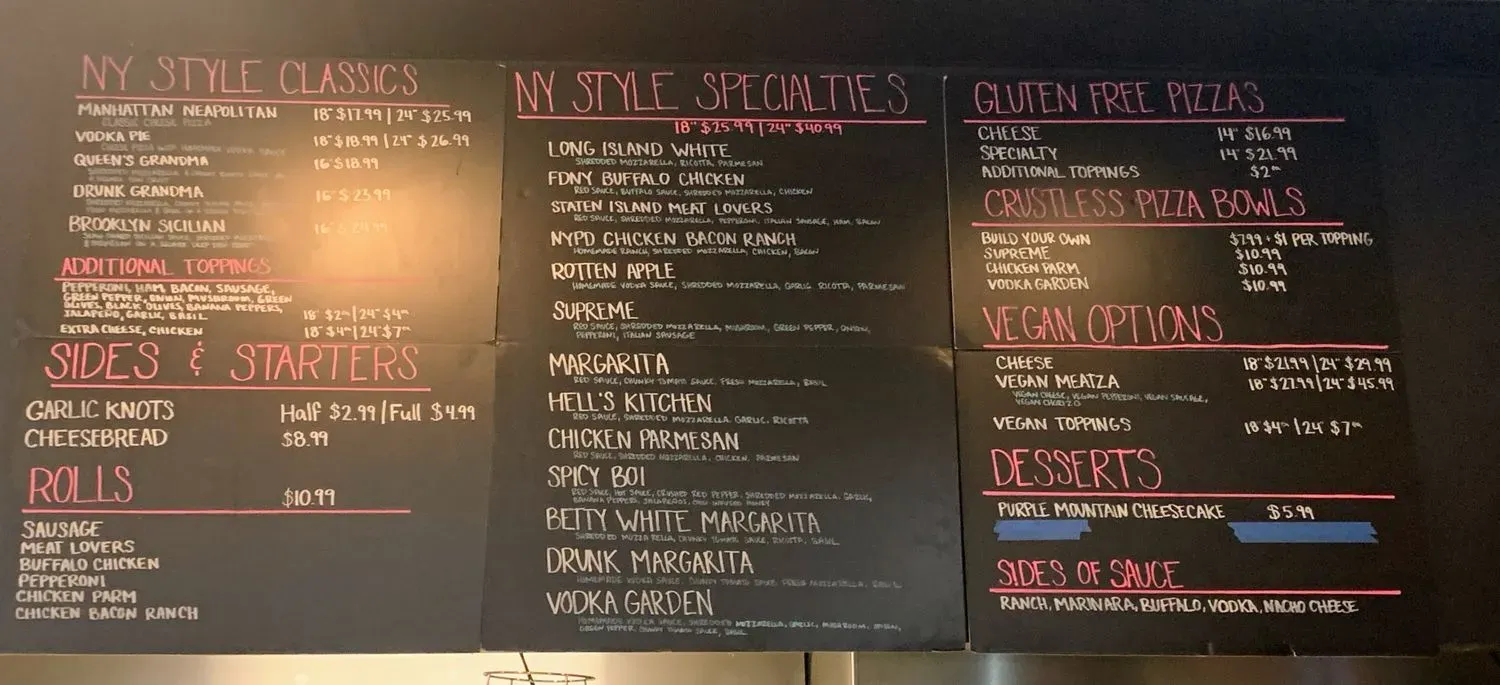 NY STYLE CLASSICS
MANHATTAN NEAPOLITAN 18" $17.99 | 24" $25.99
CLASSIC CHEESE PIZZA
VODKA PIE 18" $18.99 | 24" $26.99
CHEESE PIZZA WITH HOMEMADE VODKA SAUCE
QUEEN'S GRANDMA 16" $18.99
SHREDDED MOZZARELLA &
DRUNK GRANDMA 16" $23.99
SHREDDED MOZZARELLA,
BROOKLYN SICILIAN 16" $24.99
ADDITIONAL TOPPINGS
PEPPERONI, HAM, BACON, SAUSAGE,
GREEN PEPPER, ONION, MUSHROOM, GREEN
OLIVES, BLACK OLIVES, BANANA PEPPERS,
JALAPEÑO, GARLIC, BASIL 18" $2⁵⁰ | 24" $4⁵⁰
EXTRA CHEESE, CHICKEN 18" $4⁵⁰ | 24" $7⁰⁰
SIDES & STARTERS
GARLIC KNOTS Half $2.99 / Full $4.99
CHEESEBREAD $8.99
ROLLS $10.99
SAUSAGE
MEAT LOVERS
BUFFALO CHICKEN
PEPPERONI
CHICKEN PARM
CHICKEN BACON RANCH
NY STYLE SPECIALTIES
18" $25.99 | 24" $40.99
LONG ISLAND WHITE
SHREDDED MOZZARELLA, RICOTTA, PARMESAN
FDNY BUFFALO CHICKEN
RED SAUCE, BUFFALO SAUCE, SHREDDED MOZZARELLA, CHICKEN
STATEN ISLAND MEAT LOVERS
RED SAUCE, SHREDDED MOZZARELLA, PEPPERONI, ITALIAN SAUSAGE, HAM, BACON
NYPD CHICKEN BACON RANCH
HOMEMADE RANCH, SHREDDED MOZZARELLA, CHICKEN, BACON
ROTTEN APPLE
HOMEMADE VODKA SAUCE, SHREDDED MOZZARELLA, GARLIC, RICOTTA, PARMESAN
SUPREME
RED SAUCE, SHREDDED MOZZARELLA, MUSHROOM, GREEN PEPPER, ONION,
PEPPERONI, ITALIAN SAUSAGE
MARGARITA
RED SAUCE, CHUNKY TOMATO SAUCE, FRESH MOZZARELLA, BASIL
HELL'S KITCHEN
RED SAUCE, SHREDDED MOZZARELLA, GARLIC, RICOTTA
CHICKEN PARMESAN
RED SAUCE, SHREDDED MOZZARELLA, CHICKEN, PARMESAN
SPICY BOI
RED SAUCE, HOT SAUCE, CRUSHED RED PEPPER, SHREDDED MOZZARELLA, GARLIC,
BANANA PEPPERS, JALAPEÑOS, CHILI INFUSED HONEY
BETTY WHITE MARGARITA
SHREDDED MOZZARELLA, CHUNKY TOMATO SAUCE, RICOTTA, BASIL
DRUNK MARGARITA
HOMEMADE VODKA SAUCE, CHUNKY TOMATO SAUCE, FRESH MOZZARELLA, BASIL
VODKA GARDEN
HOMEMADE VODKA SAUCE, SHREDDED MOZZARELLA, GARLIC, MUSHROOM, ONION,
GREEN PEPPER, CHUNKY TOMATO SAUCE, BASIL
GLUTEN FREE PIZZAS
CHEESE 14" $16.99
SPECIALTY 14" $21.99
ADDITIONAL TOPPINGS $2
CRUSTLESS PIZZA BOWLS
BUILD YOUR OWN $7.99 + $1 PER TOPPING
SUPREME $10.99
CHICKEN PARM $10.99
VODKA GARDEN $10.99
VEGAN OPTIONS
CHEESE 18" $21.99 | 24" $29.99
VEGAN MEATZA 18" $27.99 | 24" $45.99
VEGAN CHEESE, VEGAN PEPPERONI, VEGAN SAUSAGE,
VEGAN CHORIZO
VEGAN TOPPINGS 18" $4 | 24" $7
DESSERTS
PURPLE MOUNTAIN CHEESECAKE $5.99
SIDES OF SAUCE
RANCH, MARINARA, BUFFALO, VODKA, NACHO CHEESE